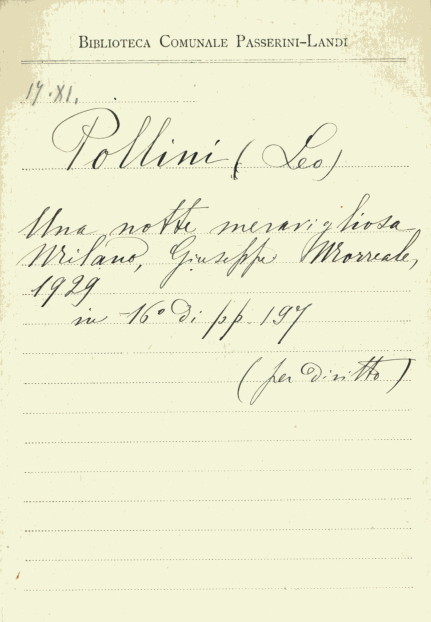 BIBLIOTECA COMUNALE PASSERINI-LANDI
17·XI.
Pollini (Leo)
Una notte meravigliosa
Milano, Giuseppe Morreale,
1929
in 16° di pp. 197
(per diritto)